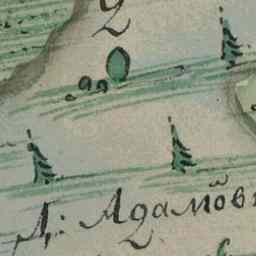 2
Д: Адамов
2